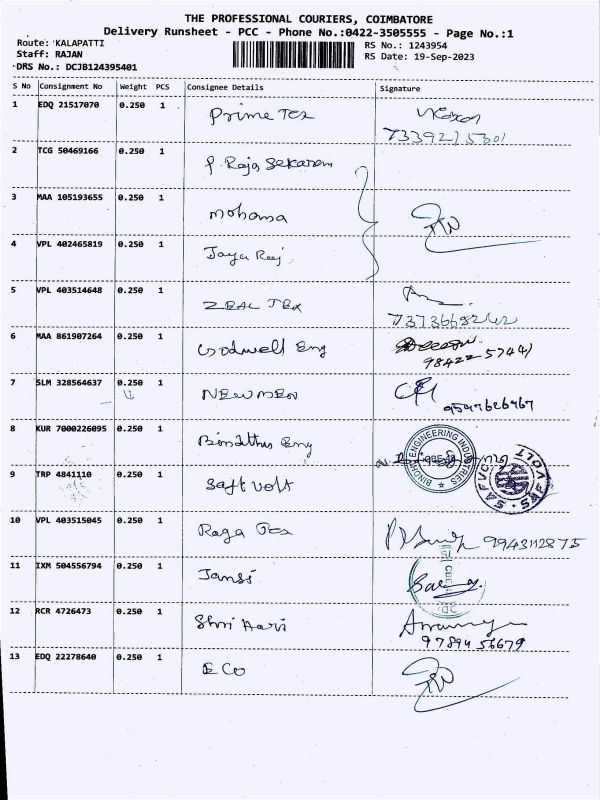 THE PROFESSIONAL COURIERS, COIMBATORE
Delivery Runsheet - PCC - Phone No.:0422-3505555 - Page No.:1
Route: KALAPATTI
Staff: RAJAN
DRS No.: DCJB124395401
RS No.: 1243954
RS Date: 19-Sep-2023
S No Consignment No Weight PCS Consignee Details Signature
1 EDQ 21517070 0.250 1 Prime Tex
2 TCG 50469166 0.250 1 P. Raja Sekaran
3 MAA 105193655 0.250 1 mohana
4 VPL 402465819 0.250 1 Jaya Raj
5 VPL 403514648 0.250 1 ZEAL TEX
6 MAA 861907264 0.250 1 Godwell Eng
98422 57441
7 SLM 328564637 0.250 1 NEWMEN
9597626967
8 KUR 7000226095 0.250 1 Eng
ENGINEERING INDUSTRIES
9 TRP 4841110 0.250 1 Saft Volt
SAFVOLT
10 VPL 403515045 0.250 1 Raga Tex 9943112875
11 IXM 504556794 0.250 1 Jansi
12 RCR 4726473 0.250 1 Shri Hari
97894 56679
13 EDQ 22278640 0.250 1 ECO